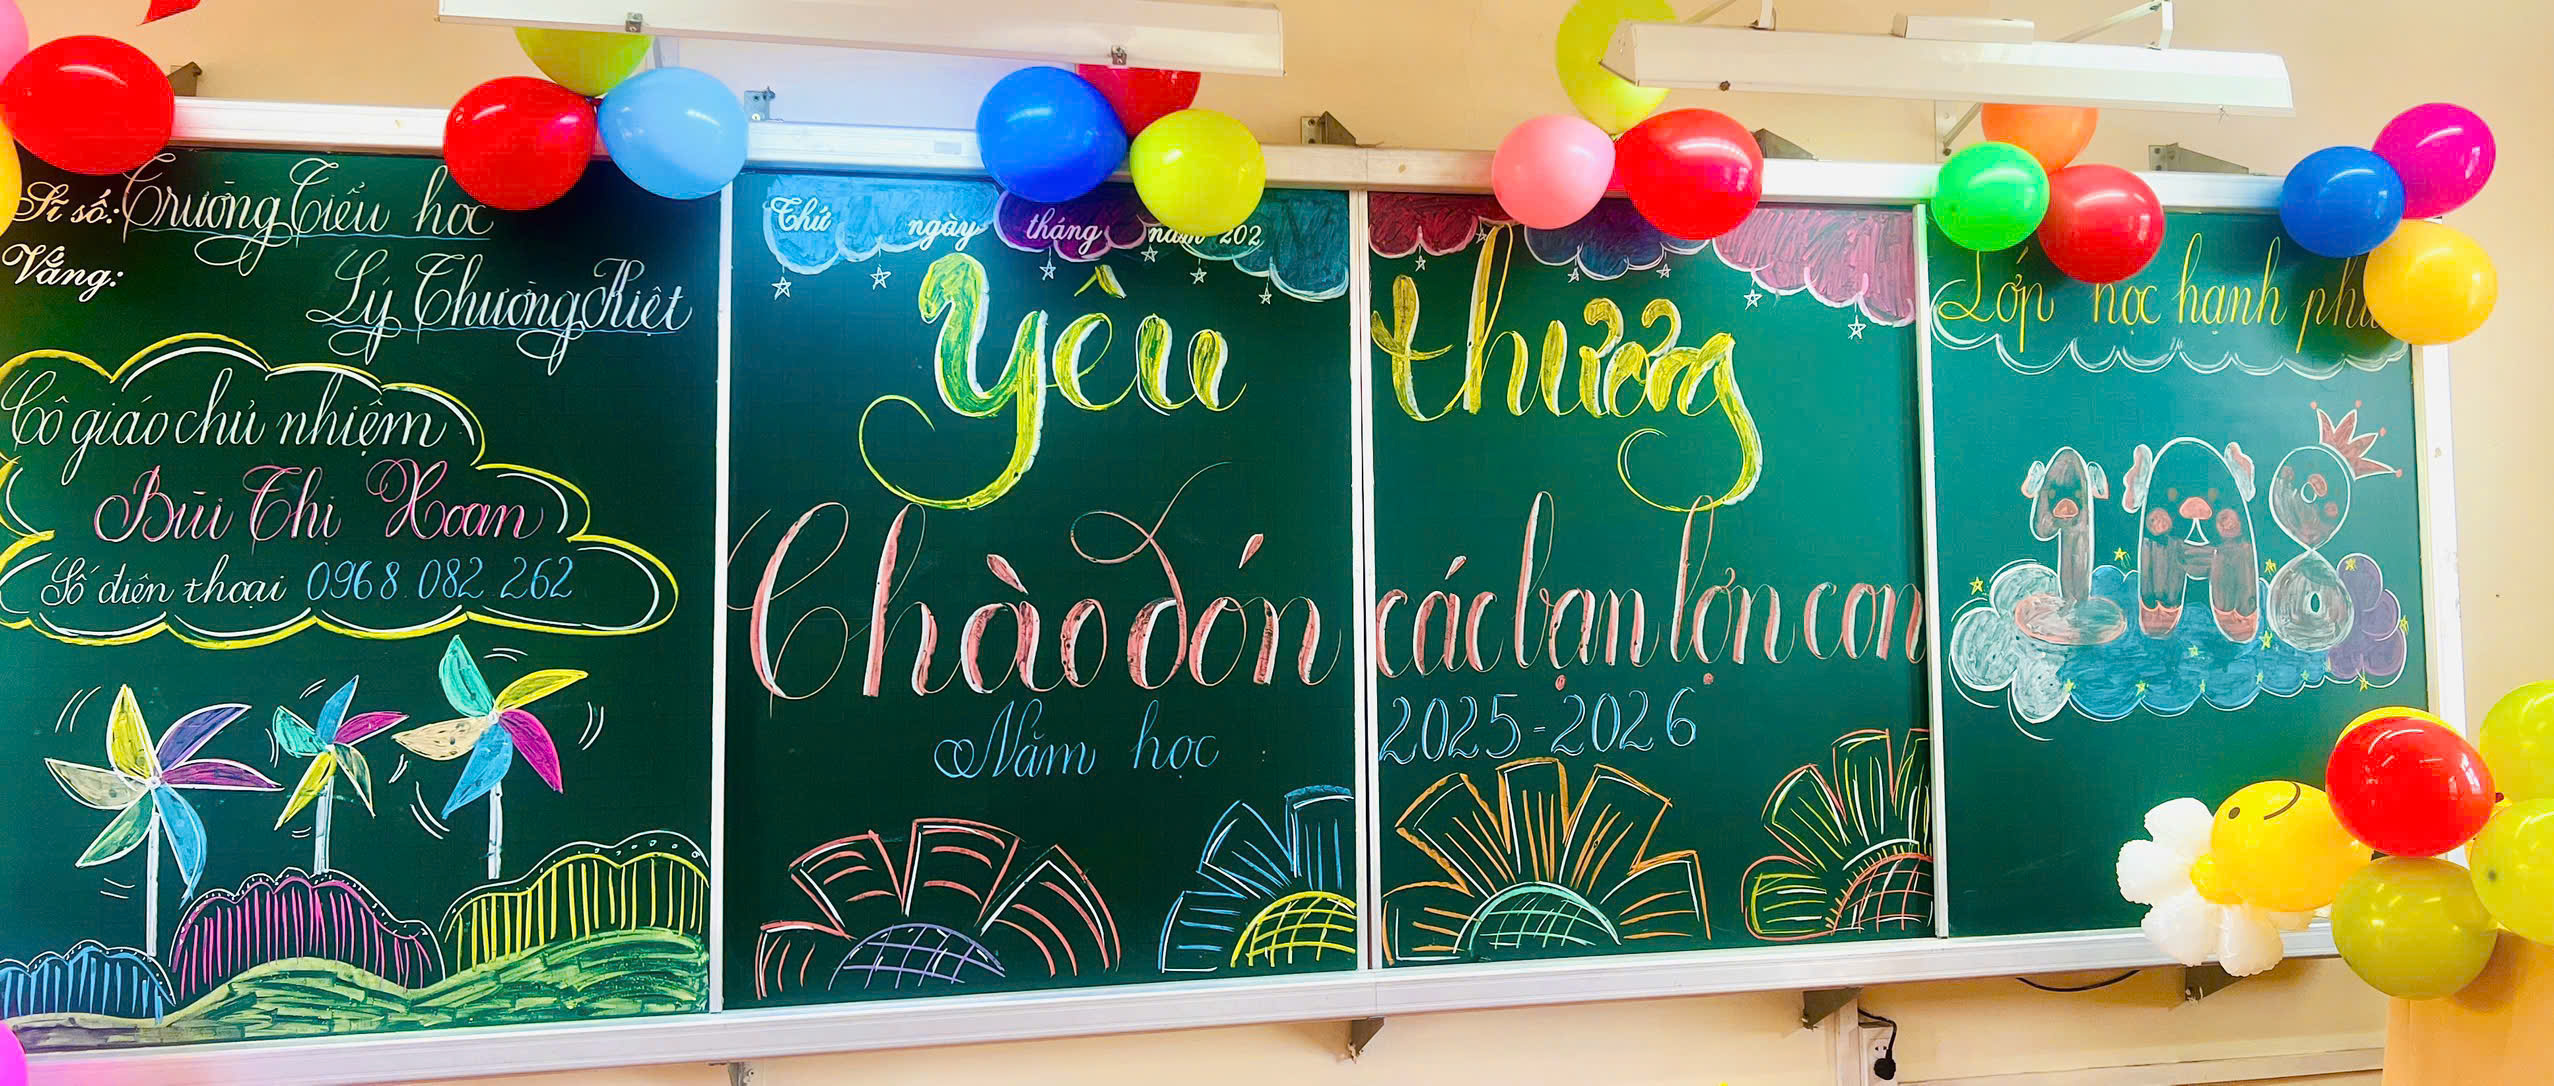 Sĩ số:
Vắng:
Trường Tiểu học
Lý Thường Kiệt
Cô giáo chủ nhiệm
Bùi Thị Hoan
Số điện thoại 0968 082 262
Thứ ngày tháng năm 202
Yêu thương
Chào đón các bạn lợn con
Năm học 2025-2026
Lớp học hạnh
1A8